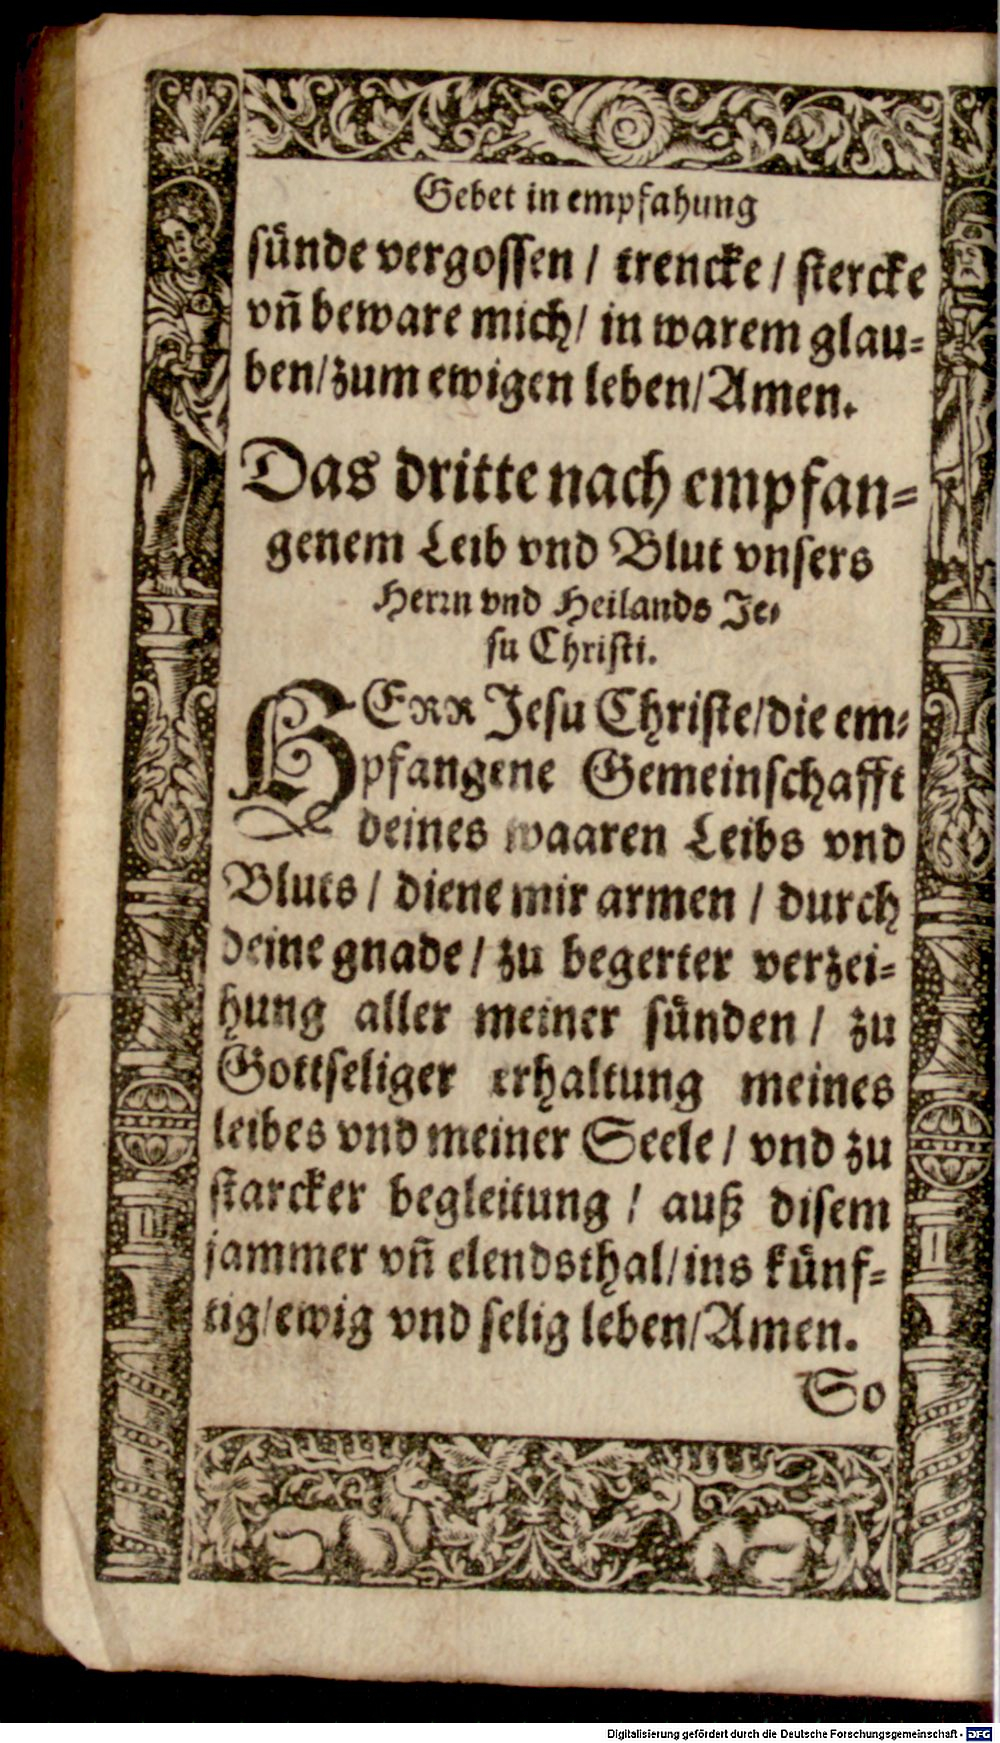 Gebet in empfahung
sünde vergossen / trencke / stercke
vñ beware mich / in warem glau-
ben / zum ewigen leben / Amen.
Das dritte nach empfan-
genem Leib vnd Blut vnsers
Herrn vnd Heilands Je-
su Christi.
HErr Jesu Christe / die em-
pfangene Gemeinschafft
deines waaren Leibs vnd
Bluts / diene mir armen / durch
deine gnade / zu begerter verzei-
hung aller meiner sünden / zu
Gottseliger erhaltung meines
leibes vnd meiner Seele / vnd zu
starcker begleitung / auß disem
jammer vñ elendsthal / ins künf-
tig / ewig vnd selig leben / Amen.
So
Digitalisierung gefördert durch die Deutsche Forschungsgemeinschaft - DFG